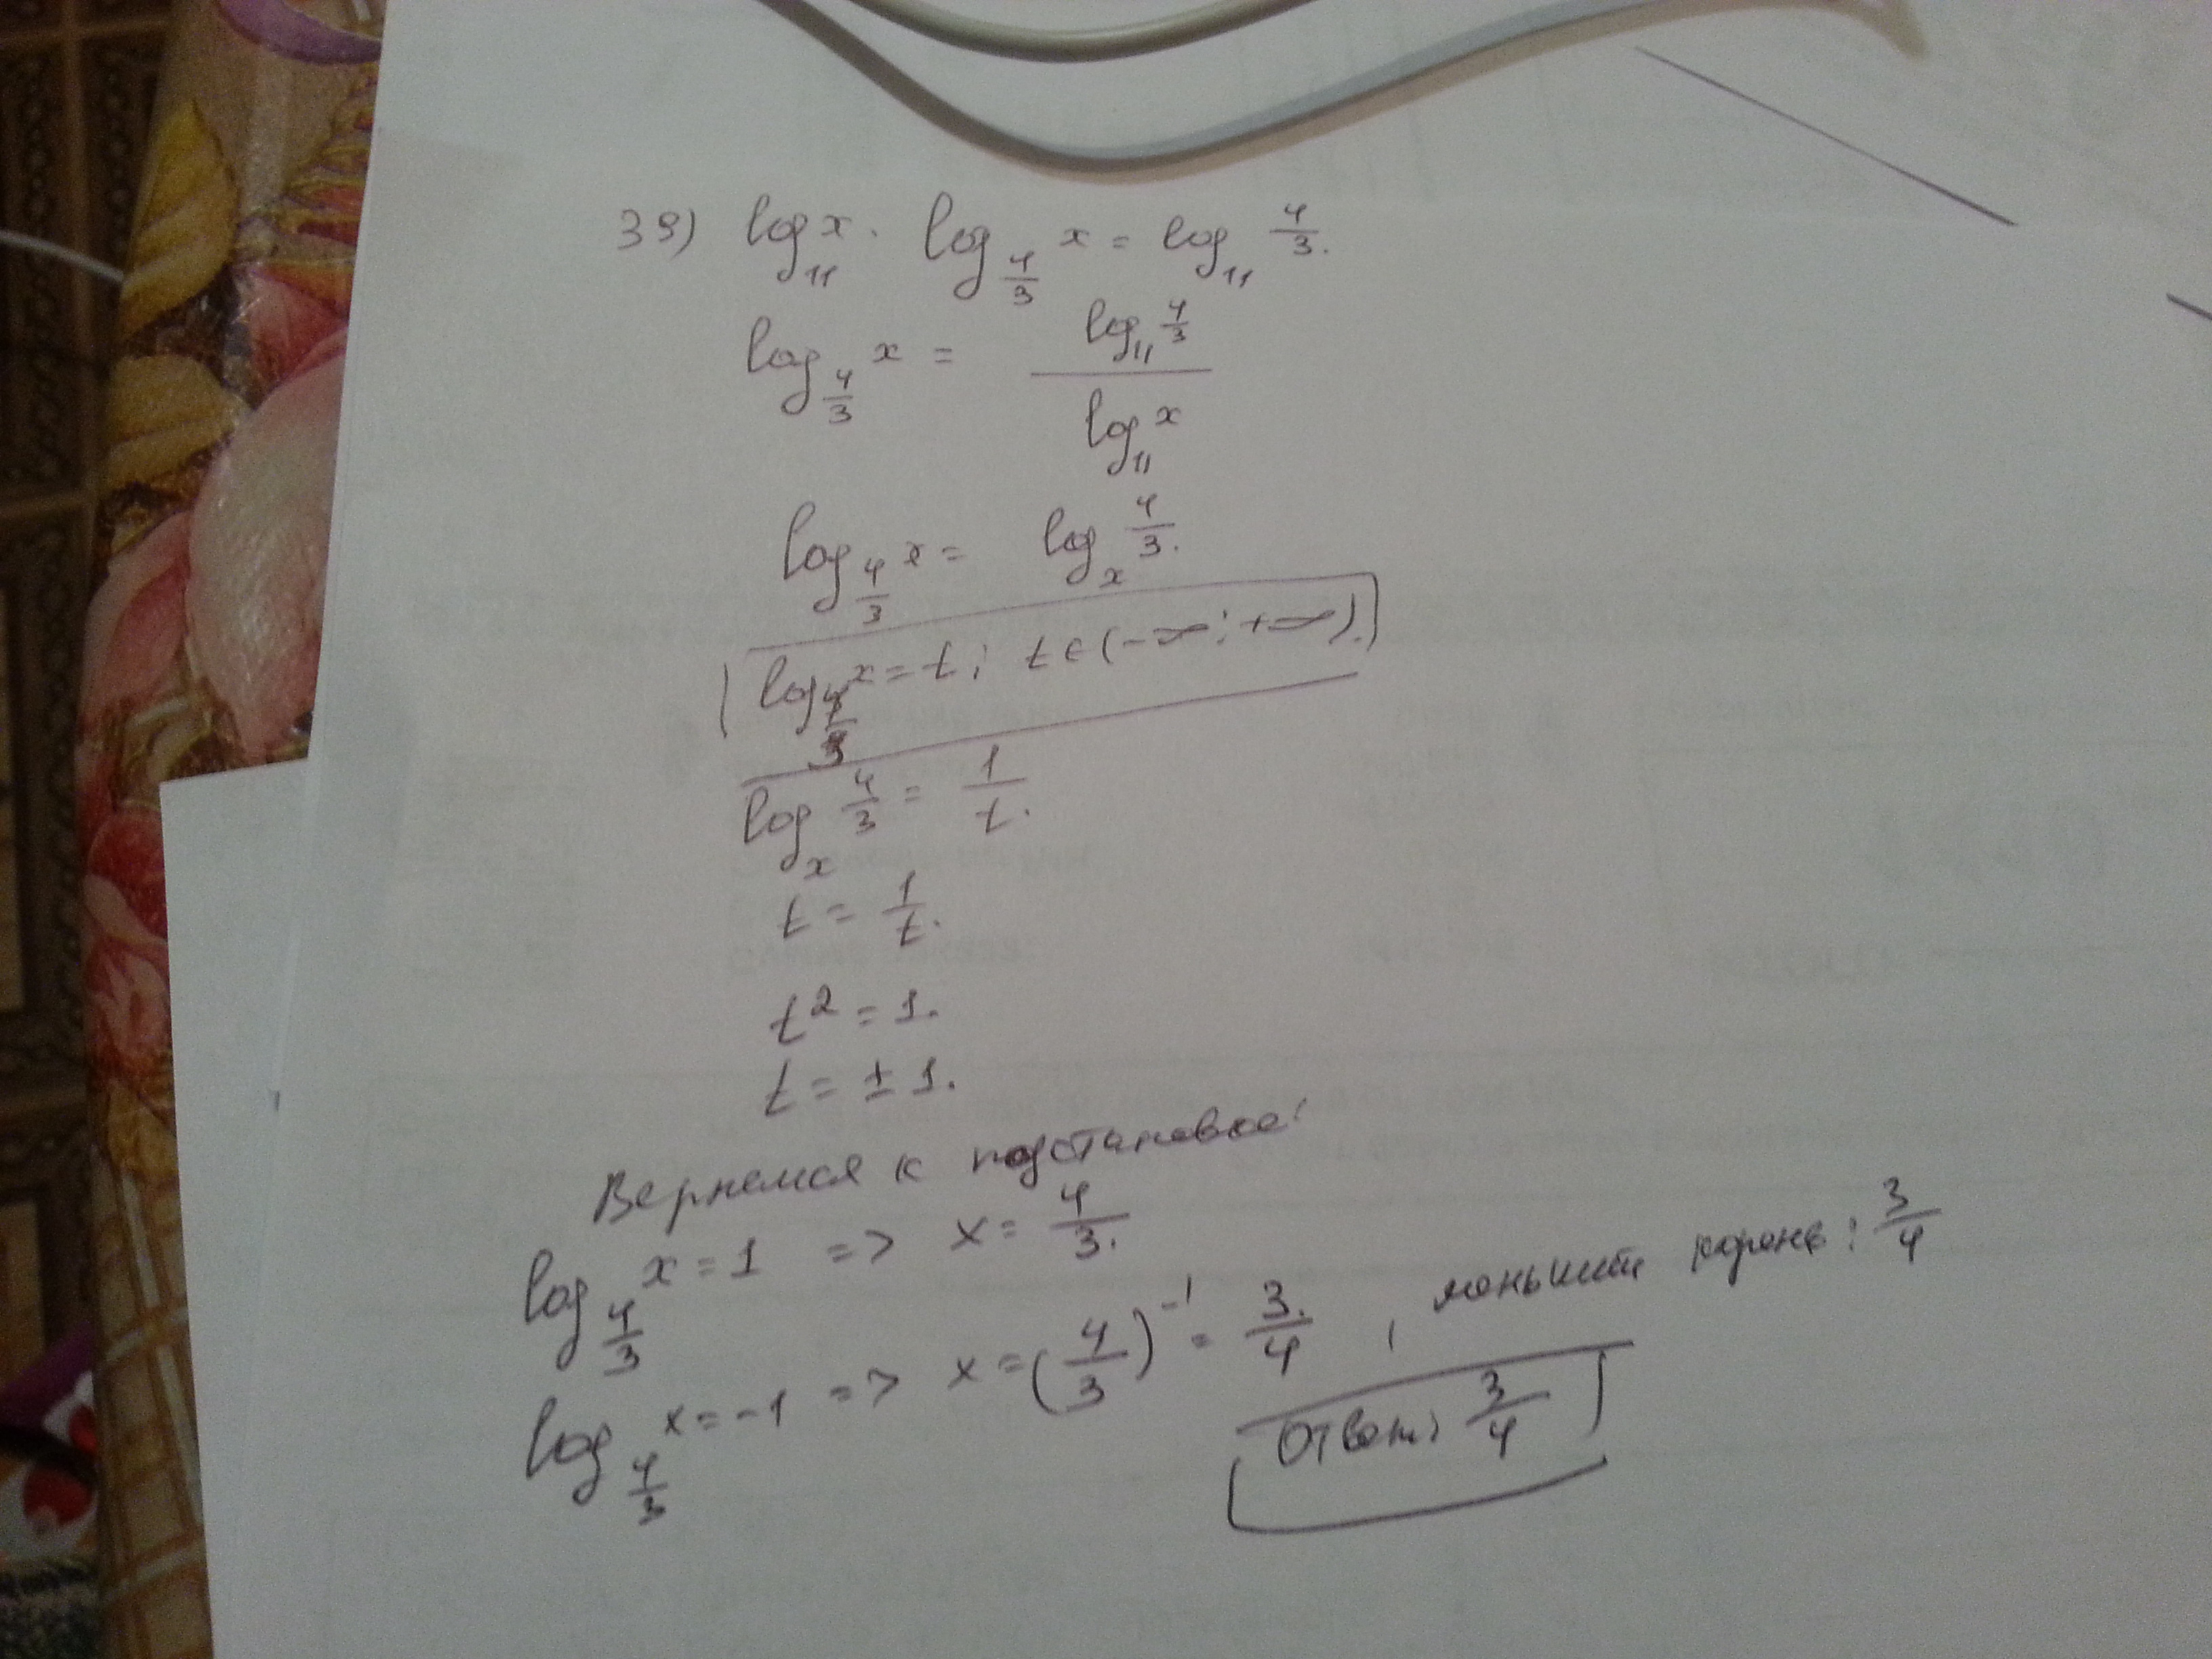 39) log₁₁ x · log_{4/3} x = log₁₁ 4/3.
log_{4/3} x = log₁₁ 4/3 / log₁₁ x
log_{4/3} x = log_x 4/3.
log_{4/3} x = t; t ∈ (-∞; +∞).
log_x 4/3 = 1/t.
t = 1/t.
t² = 1.
t = ± 1.
Вернемся к подстановке:
log_{4/3} x = 1 => x = 4/3.
log_{4/3} x = -1 => x = (4/3)⁻¹ = 3/4. , меньший корень: 3/4
Ответ: 3/4